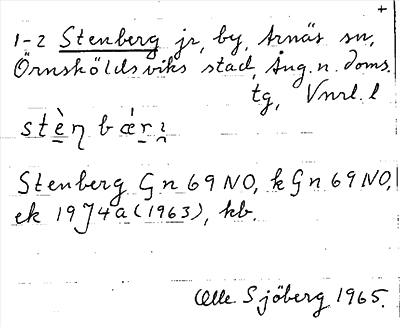 +
1-2 Stenberg jr, by, Arnäs sn,
Örnsköldsviks stad, Ång. n. doms.
tg, Vnrl. l
stè̱n bǽ̱r̯
Stenberg Gn 69 NO, k Gn 69 NO,
ek 19J4a (1963), hb.
Olle Sjöberg 1965.